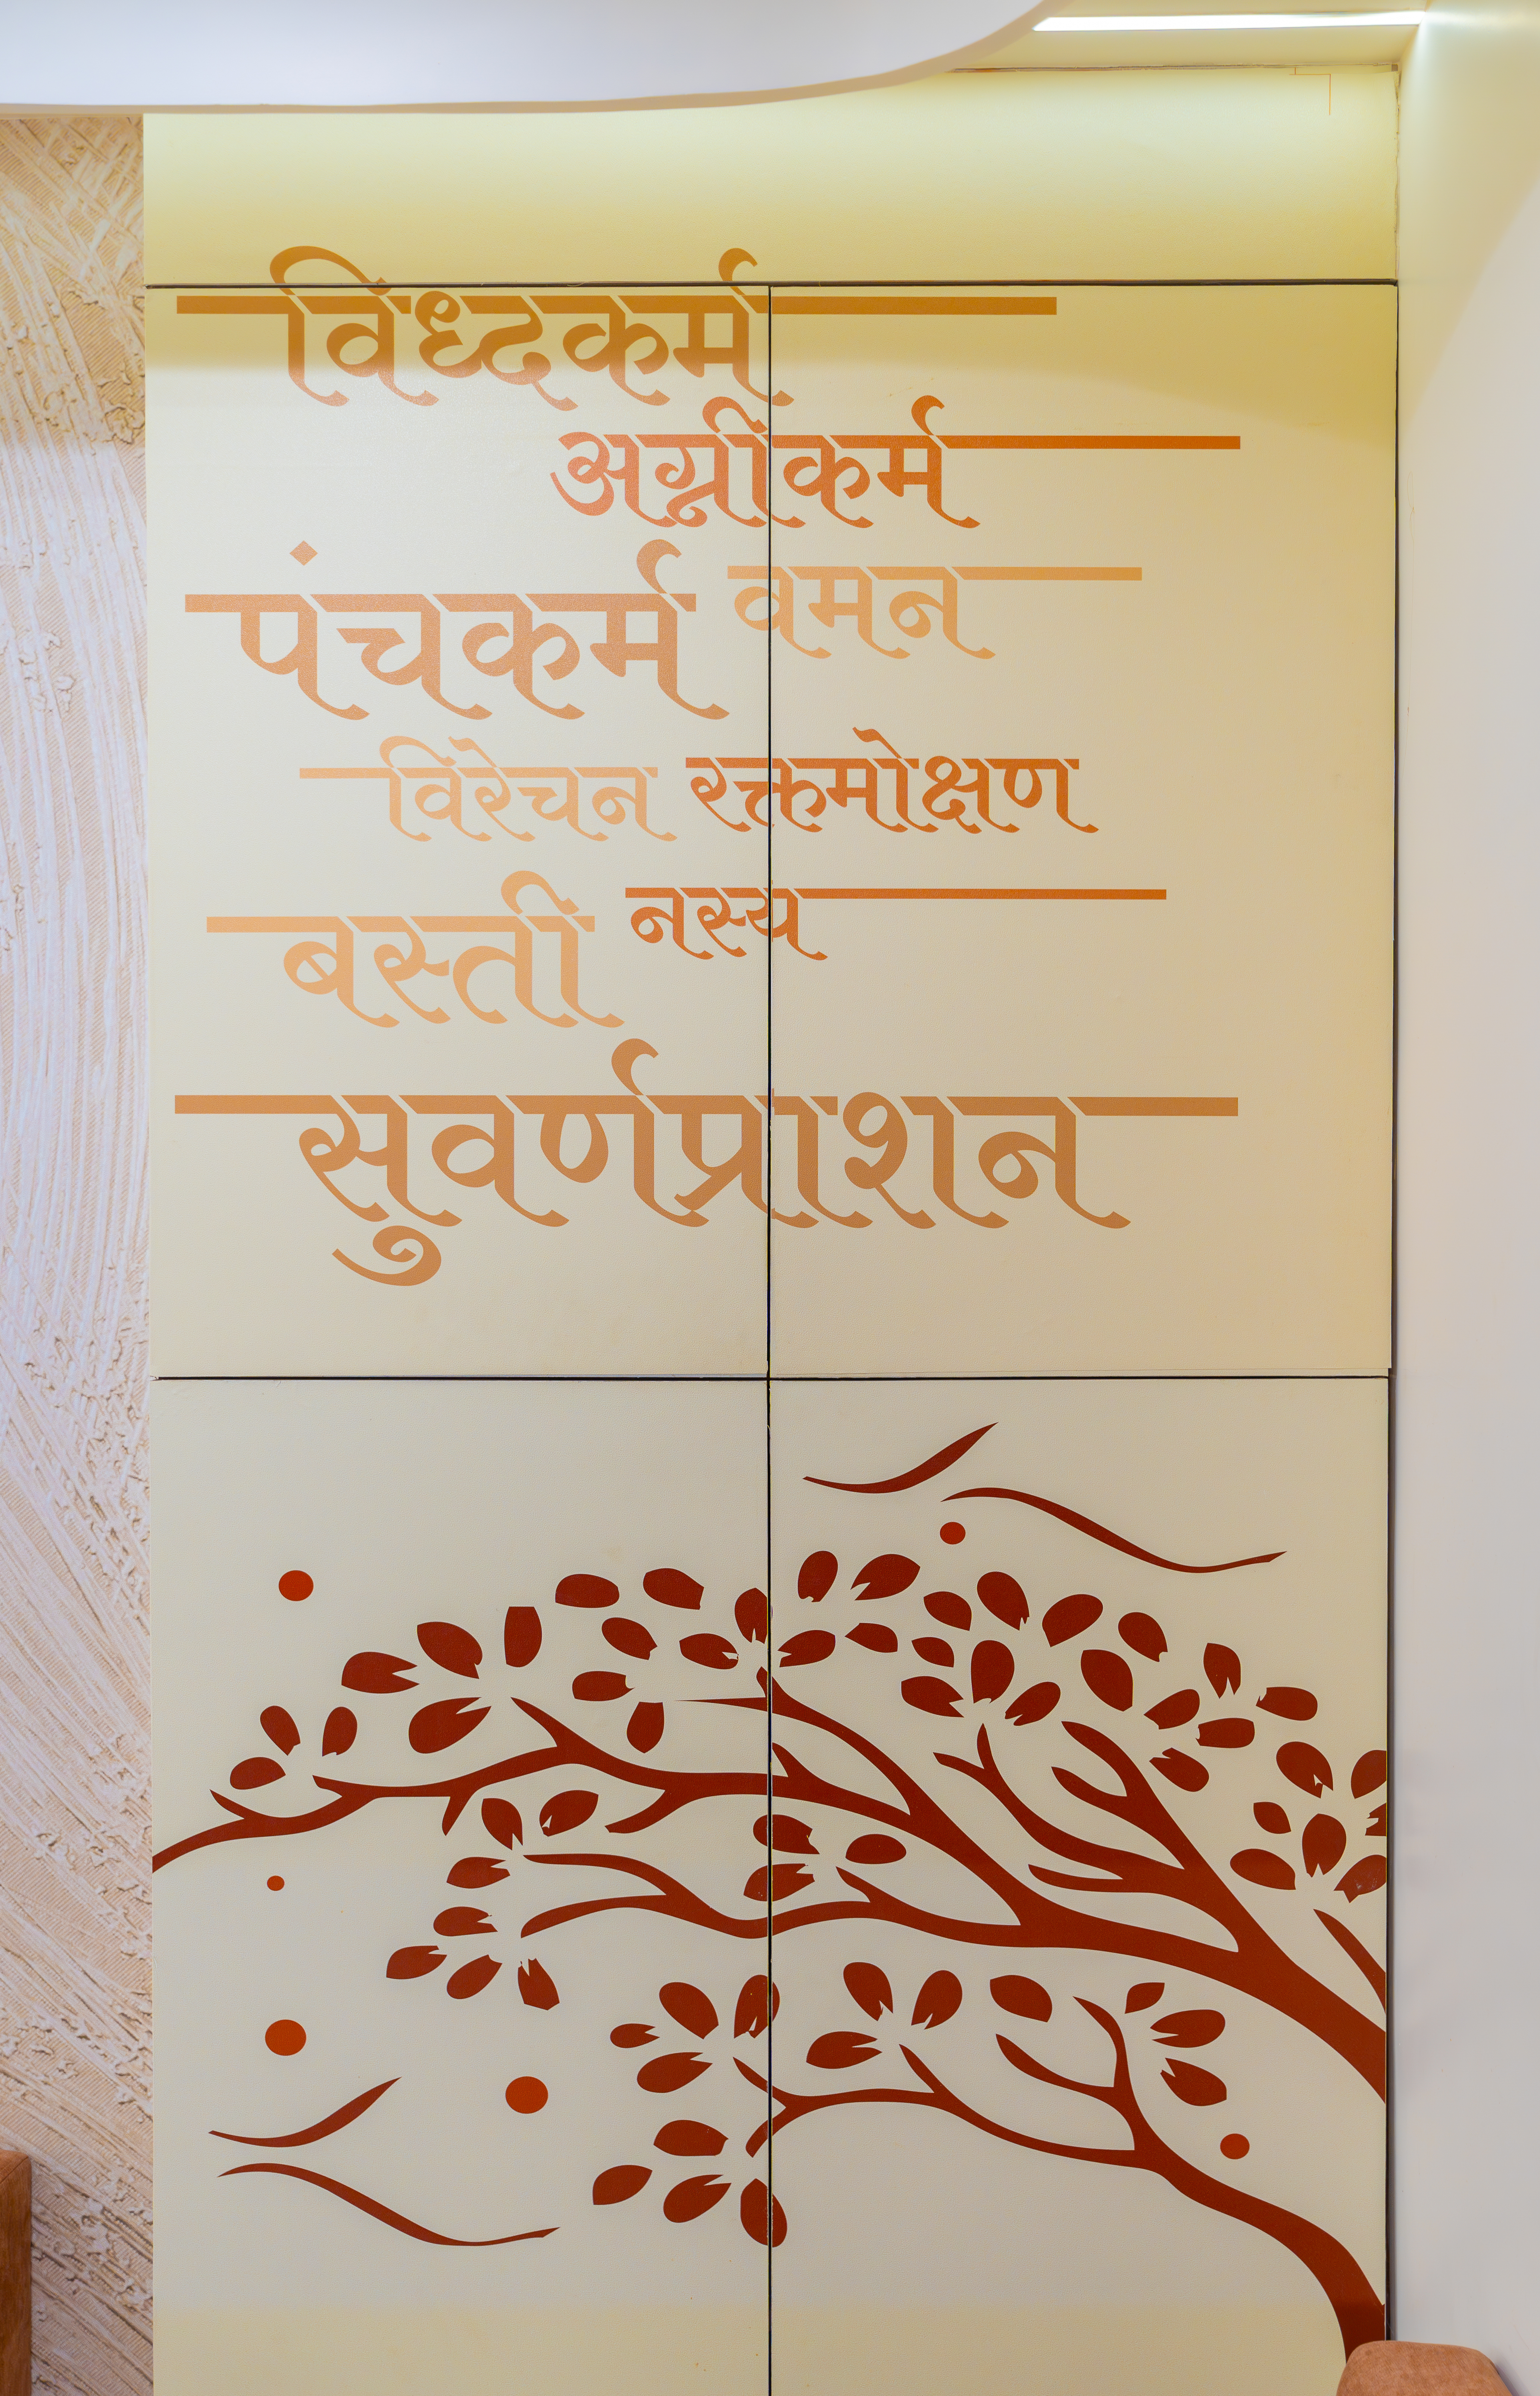 विध्दकर्म
अग्नीकर्म
पंचकर्म वमन
विरेचन रक्तमोक्षण
बस्ती नस्य
सुवर्णप्राशन